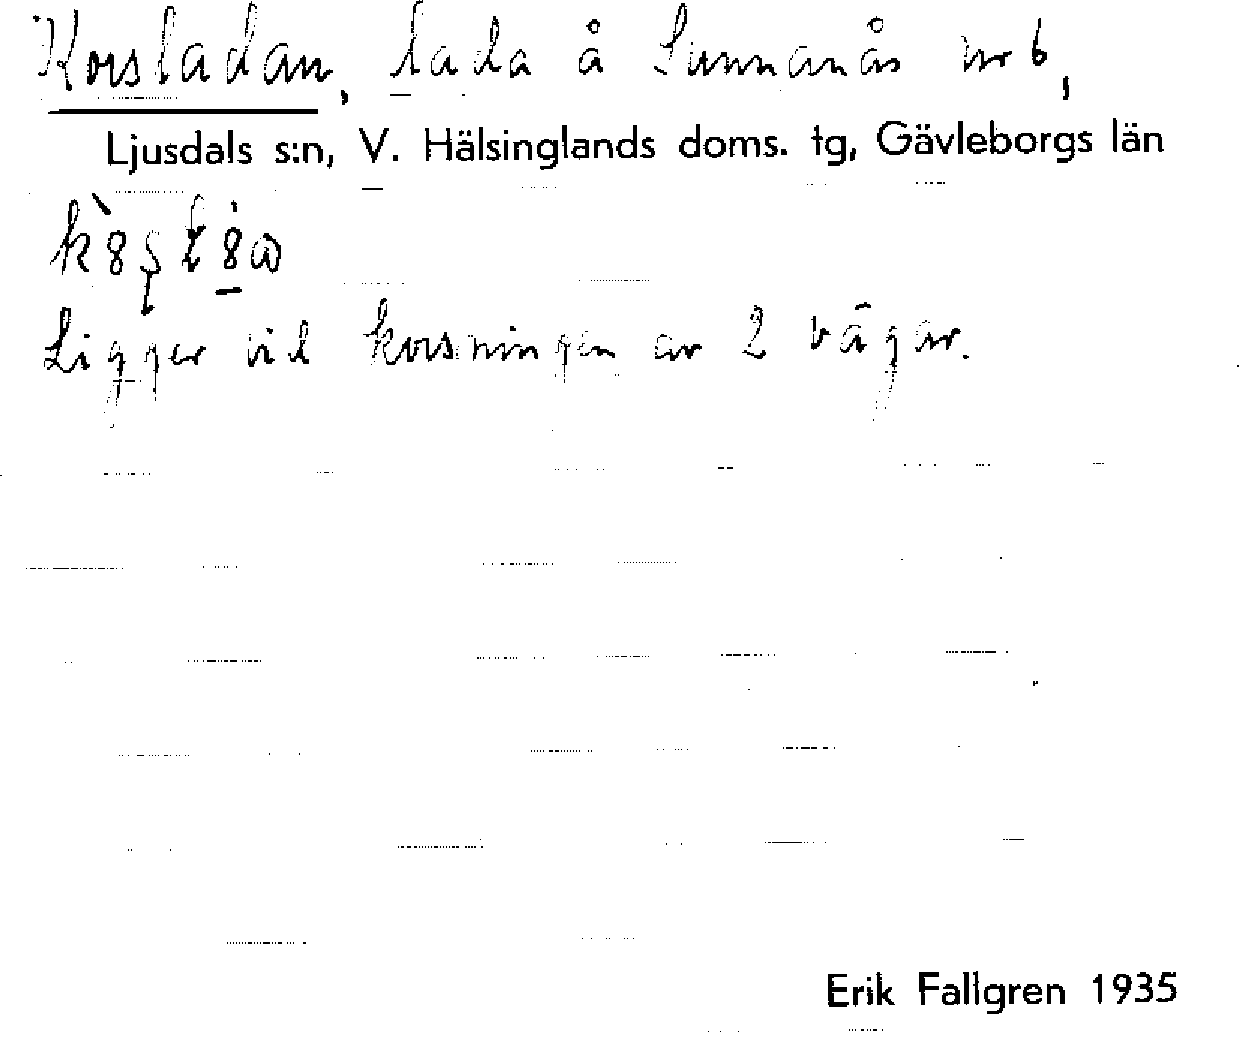 Korsladan, lada å Sunnanås nr 6,
Ljusdals s:n, V. Hälsinglands doms. tg, Gävleborgs län
Ligger vid korsningen av 2 vägar.
Erik Fallgren 1935